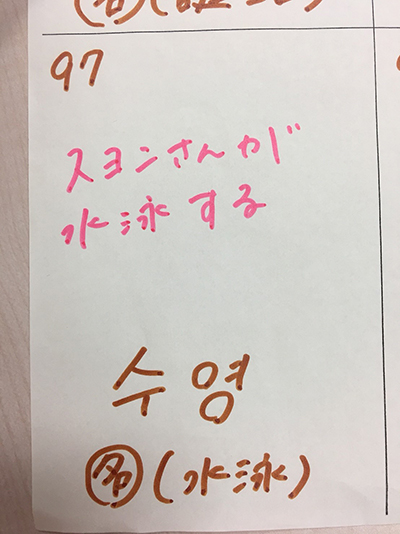 97
スヨンさんが
水泳する
수영
名(水泳)